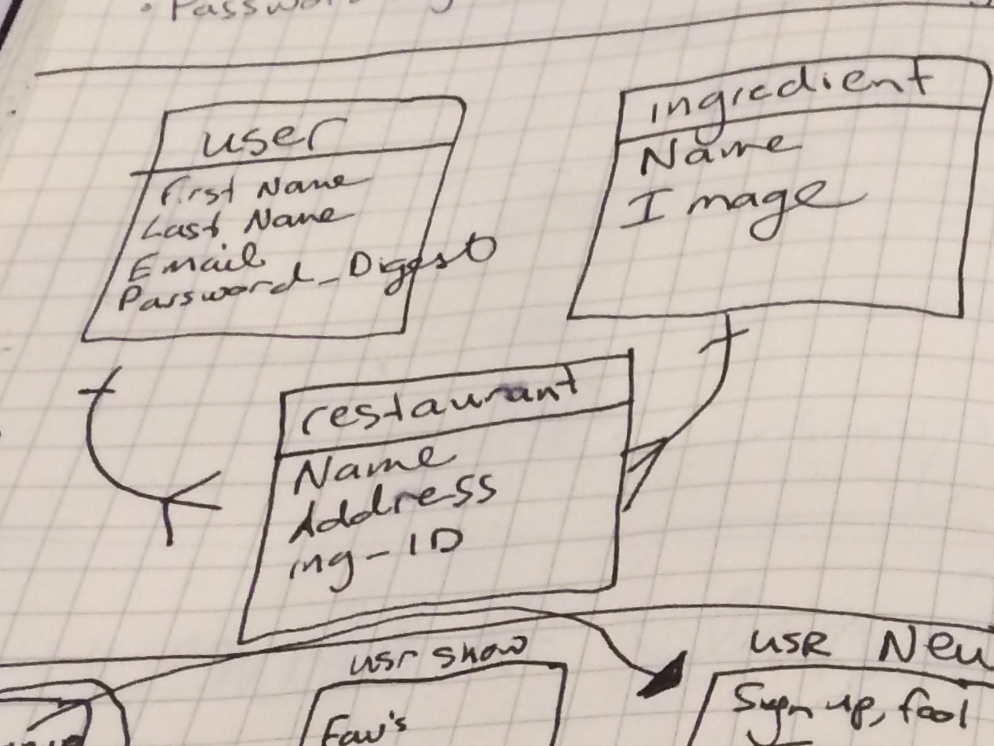 • Password
user
First Name
Last Name
Email
Password_Digest
ingredient
Name
Image
restaurant
Name
Address
ing-ID
usr show
Fav's
usr New
Sign up, fool